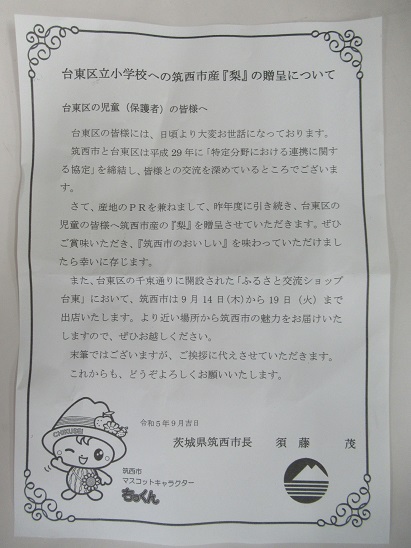 台東区立小学校への筑西市産『梨』の贈呈について
台東区の児童（保護者）の皆様へ
台東区の皆様には、日頃より大変お世話になっております。
筑西市と台東区は平成29年に「特定分野における連携に関す
る協定」を締結し、皆様との交流を深めているところでございま
す。
さて、産地のＰＲを兼ねまして、昨年度に引き続き、台東区の
児童の皆様へ筑西市産の『梨』を贈呈させていただきます。ぜひ
ご賞味いただき、『筑西市のおいしい』を味わっていただけまし
たら幸いに存じます。
また、台東区の千束通りに開設された「ふるさと交流ショップ
台東」において、筑西市は９月14日(木)から19日（火）まで
出店いたします。より近い場所から筑西市の魅力をお届けいた
しますので、ぜひお越しください。
末筆ではございますが、ご挨拶に代えさせていただきます。
これからも、どうぞよろしくお願いいたします。
令和５年９月吉日
茨城県筑西市長　須藤　茂
CHIKUSEI
筑西市
マスコットキャラクター
ちっくん